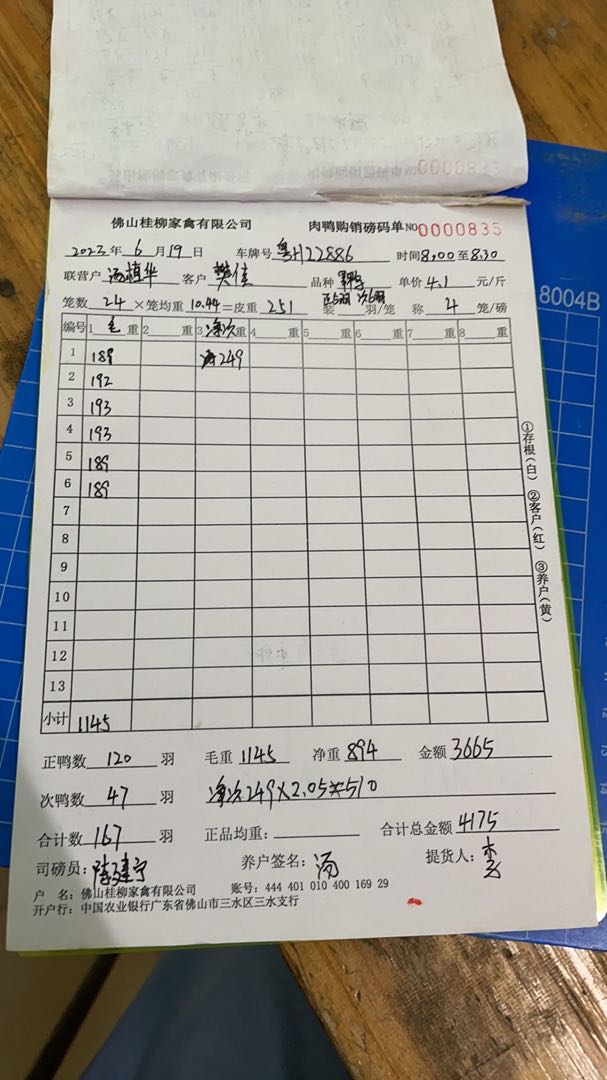 佛山桂柳家禽有限公司 肉鸭购销磅码单 NO 0000835
2023年 6月 19日 车牌号 粤H22886 时间 8:00 至 8:30
联营户 汤植华 客户 樊佳 品种 单价 4.1 元/斤
笼数 24 ×笼均重 10.44 =皮重 251 装 羽/笼 称 4 笼/磅
编号 1 毛 重 2 重 3 净次 重 4 重 5 重 6 重 7 重 8 重
1 189 净249
2 192
3 193
4 193
5 189
6 189
7
8
9
10
11
12
13
小计 1145
正鸭数 120 羽 毛重 1145 净重 894 金额 3665
次鸭数 47 羽 净次249×2.05=510
合计数 167 羽 正品均重: 合计总金额 4175
司磅员: 陈建宁 养户签名: 汤 提货人:
户 名: 佛山桂柳家禽有限公司 账号: 444 401 010 400 169 29
开户行: 中国农业银行广东省佛山市三水区三水支行
①存根(白) ②客户(红) ③养户(黄)
8004B